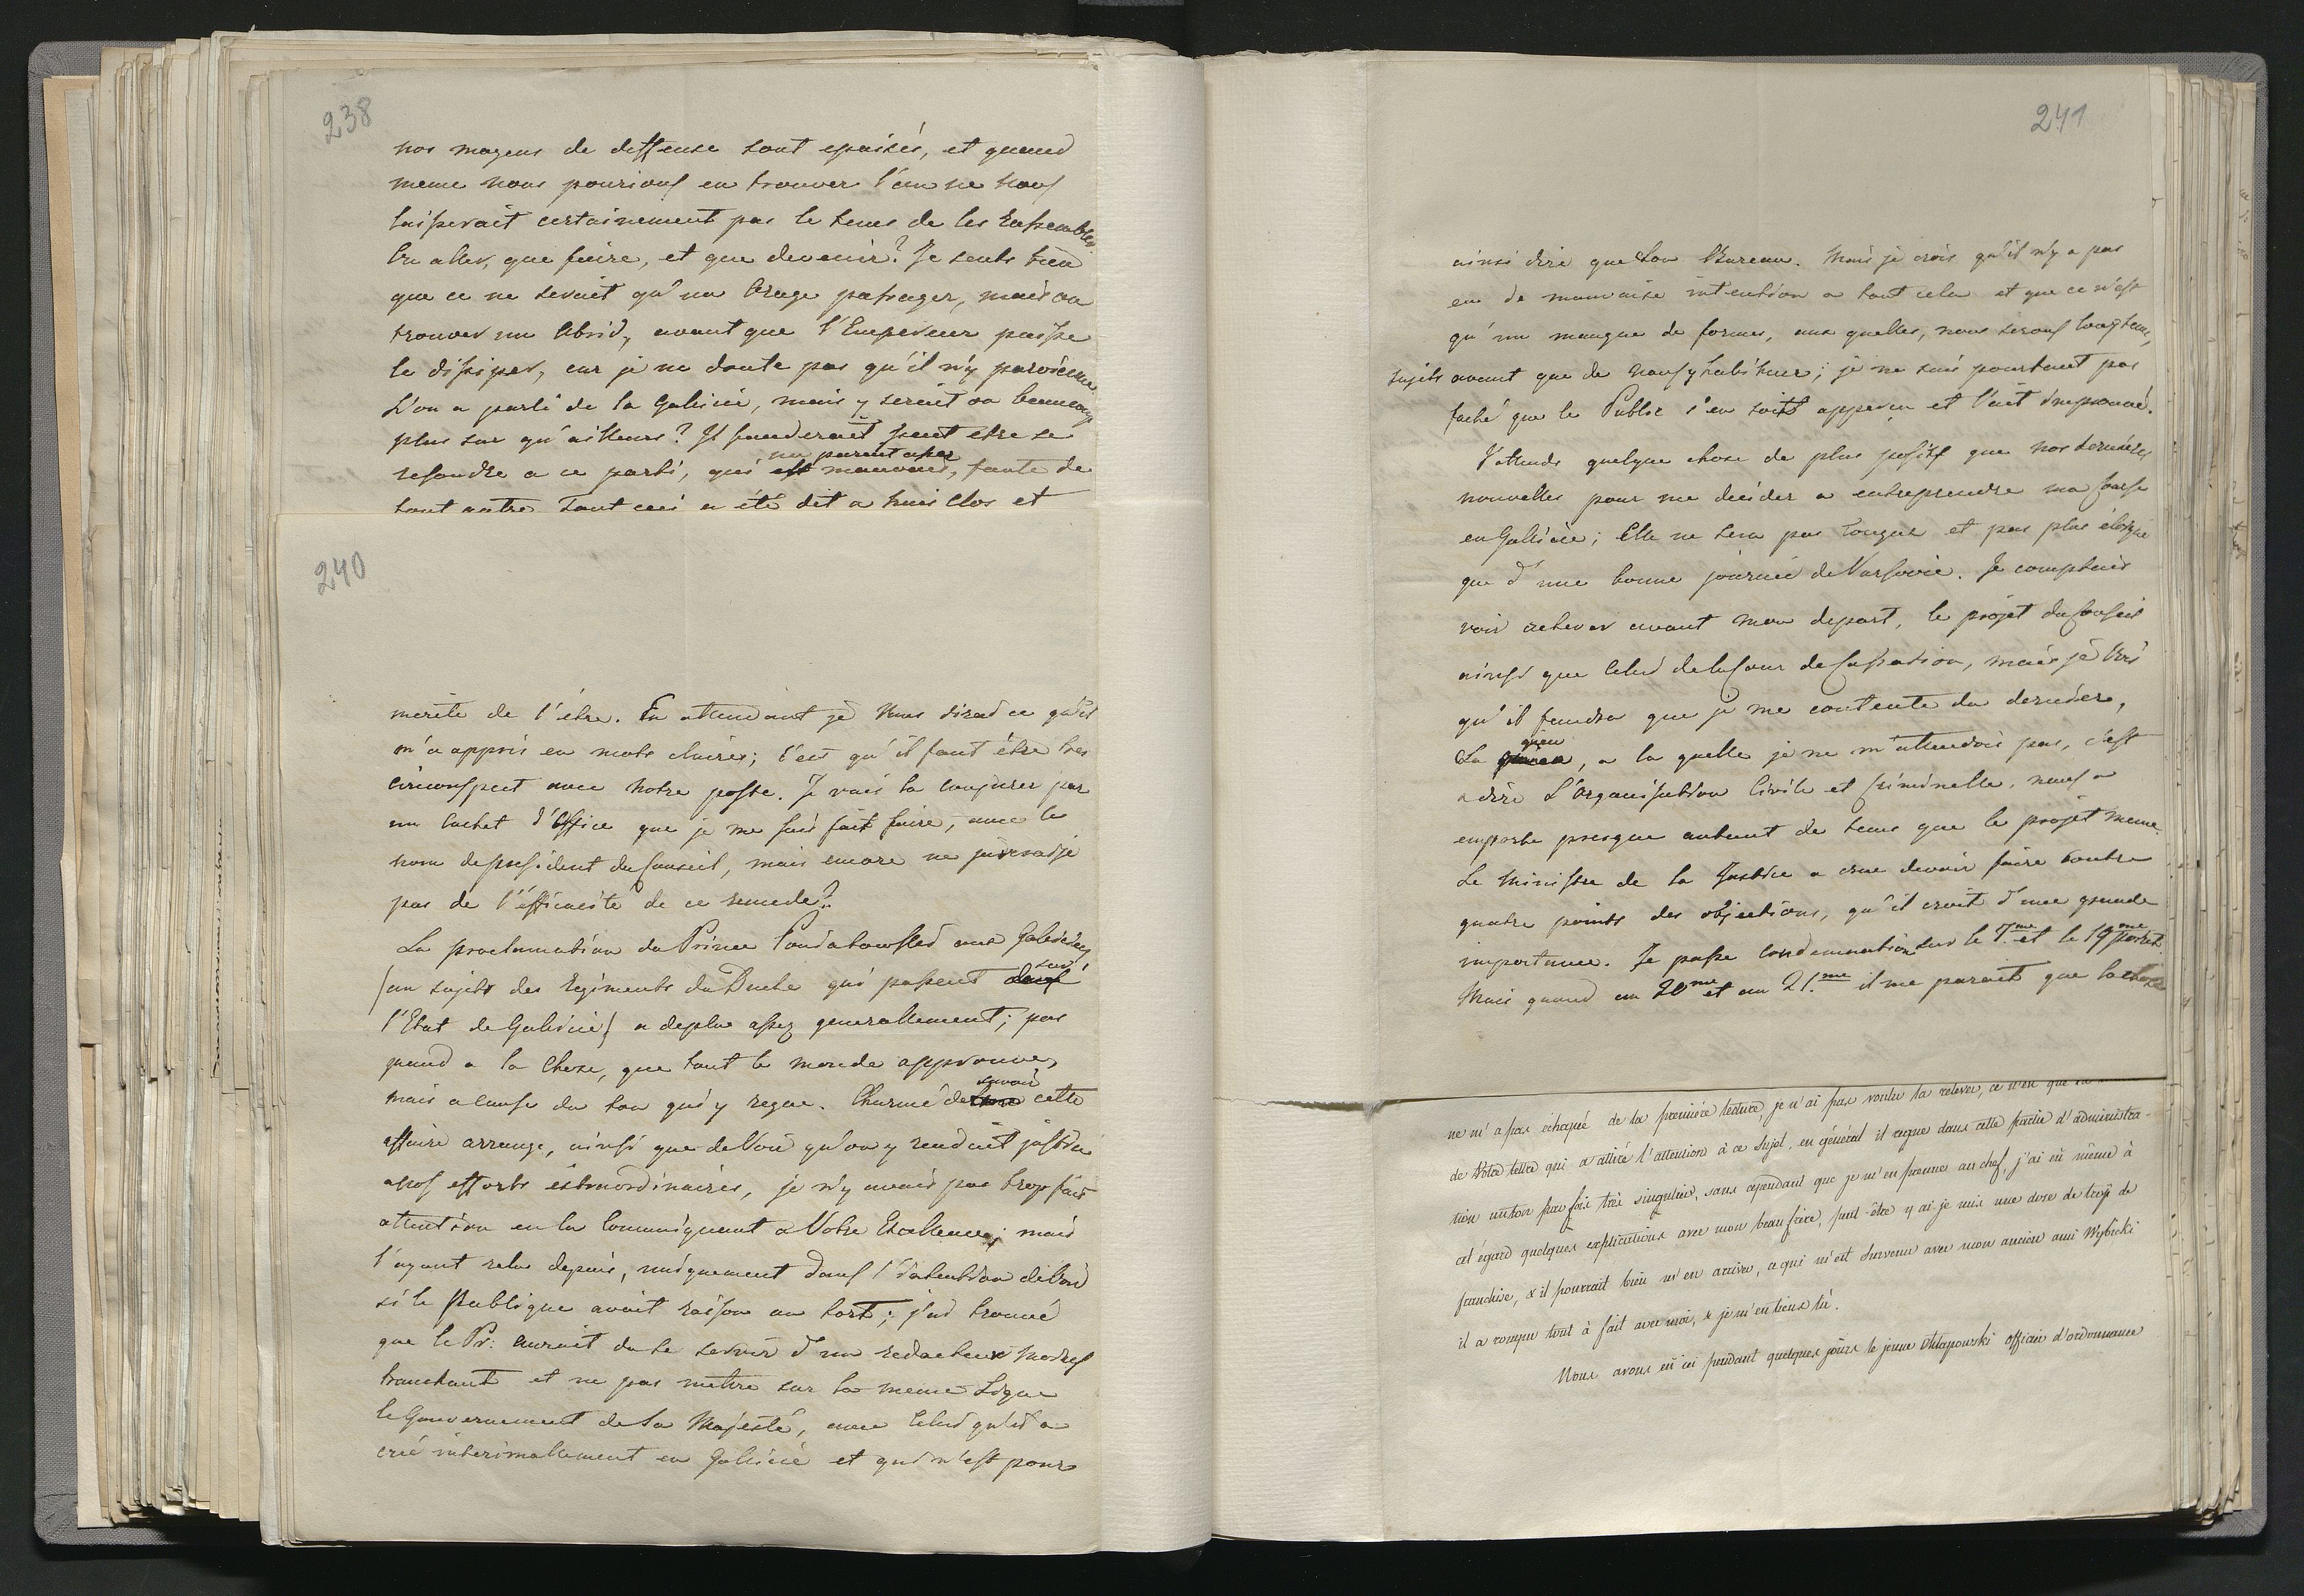 238
nos moyens de deffense sont epuisés, et quand
meme nous pourions en trouver l'on ne nous
laisserait certainement pas le tems de les rassembler.
Ou aller, que faire, et que devenir? Je sents bien
que ce ne serait qu'un Orage passager, mais ou
trouver un Abrid, avant que l'Empereur puisse
le dissiper, car je ne doute pas qu'il n'y parvienne.
L'on a parlé de la Galicie, mais y serait on beaucoup
plus sur qu'ailleurs? Il fauderait peut etre se
resoudre a ce parti, qui est me parait assez mauvais, faute de
tout autre. Tout ceci a été dit a huis clos et
240
merite de l'être. En attendant je Vous dirad ce qu'il
m'a appris en mots claires; c'est qu'il faut être tres
circonspect avec notre poste. Je vais la conjurer par
un Cachet d'Office que je me suis fait faire, avec le
nom de president du Conseil, mais encore ne jurerai je
pas de l'éfficacité de ce remede?
La proclamation du Prince Poniatowski aux Galiciens
(au sujet des Regiments du Duché qui passent dans sur
l'Etat de Galicie) a deplu assez generallement; pas
quand a la Chose, que tout le monde approuve,
mais a cause du ton qui y regne. Charmé de savoir cette
affaire arrangé, ainsi que de Voir qu'on y rendait justice
a nos efforts extraordinaires, je n'y avais pas trop fait
attention en la Communiquant a Votre Excellence; mais
l'ayant relue depuis, uniquement dans l'intention de Voir
si le Publique avait raison ou tort; j'ai trouvé
que le Pr: aurait du se servir d'un redacteur moins
tranchant et ne pas mettre sur la meme Ligne
le Gouvernement de Sa Majesté, avec Celui qu'il a
crée interimalement en Galicie et qui n'est pour
241
ainsi dire que son Bureau. Mais je crois qu'il n'y a pas
eu de mauvaise intention a tout cela et que ce n'est
qu'un manque de formes, aux quelles, nous serons longtems,
sujets avant que de nous y habituer; je ne suis pourtant pas
faché que le Public s'en soit apperçu et l'ait improuvé.
J'attends quelque chose de plus positif que nos dernieres
nouvelles pour me decider a entreprendre ma course
en Gallicie; Elle ne sera pas longue et pas plus éloigné
que d'une bonne journée de Varsovie. Je comptais
voir achever avant mon depart, le projet du Conseil
ainsi que Celui de la Cour de Cassation, mais je Vois
qu'il faudra que je me contente du dernier,
La queu, a la quelle je ne m'attendois pas, c'est
a dire L'Organisation Civile et Criminelle, nous a
emporté presque autant de tems que le projet meme.
Le Ministre de la Justice a crue devoir faire contre
quatre points des objections, qu'il croit d'une grande
importance. Je passe condemnation sur le 7.me et le 19.me point.
Mais quand au 20me et au 21.me il me parait que la chose
ne m'a pas échapé de la première lecture, je n'ai pas voulu la relever, ce n'en que
de Votre lettre qui a attiré l'attention à ce sujet. en général il regne dans cette partie d'administra-
tion un ton par fois très singulier, sans cependant que je m'en prenne au chef, j'ai eü même à
cet égard quelques explications avec mon beau frère, peut-être y ai-je mis une dose de trop de
franchise, & il pourrait bien m'en arriver, ce qui m'est survenu avec mon ancien ami Wybicki
il a rompu tout à fait avec moi, & je m'en tiens là.
Nous avons eü ici pendant quelques jours le jeune Chlapowski officier d'ordonnance